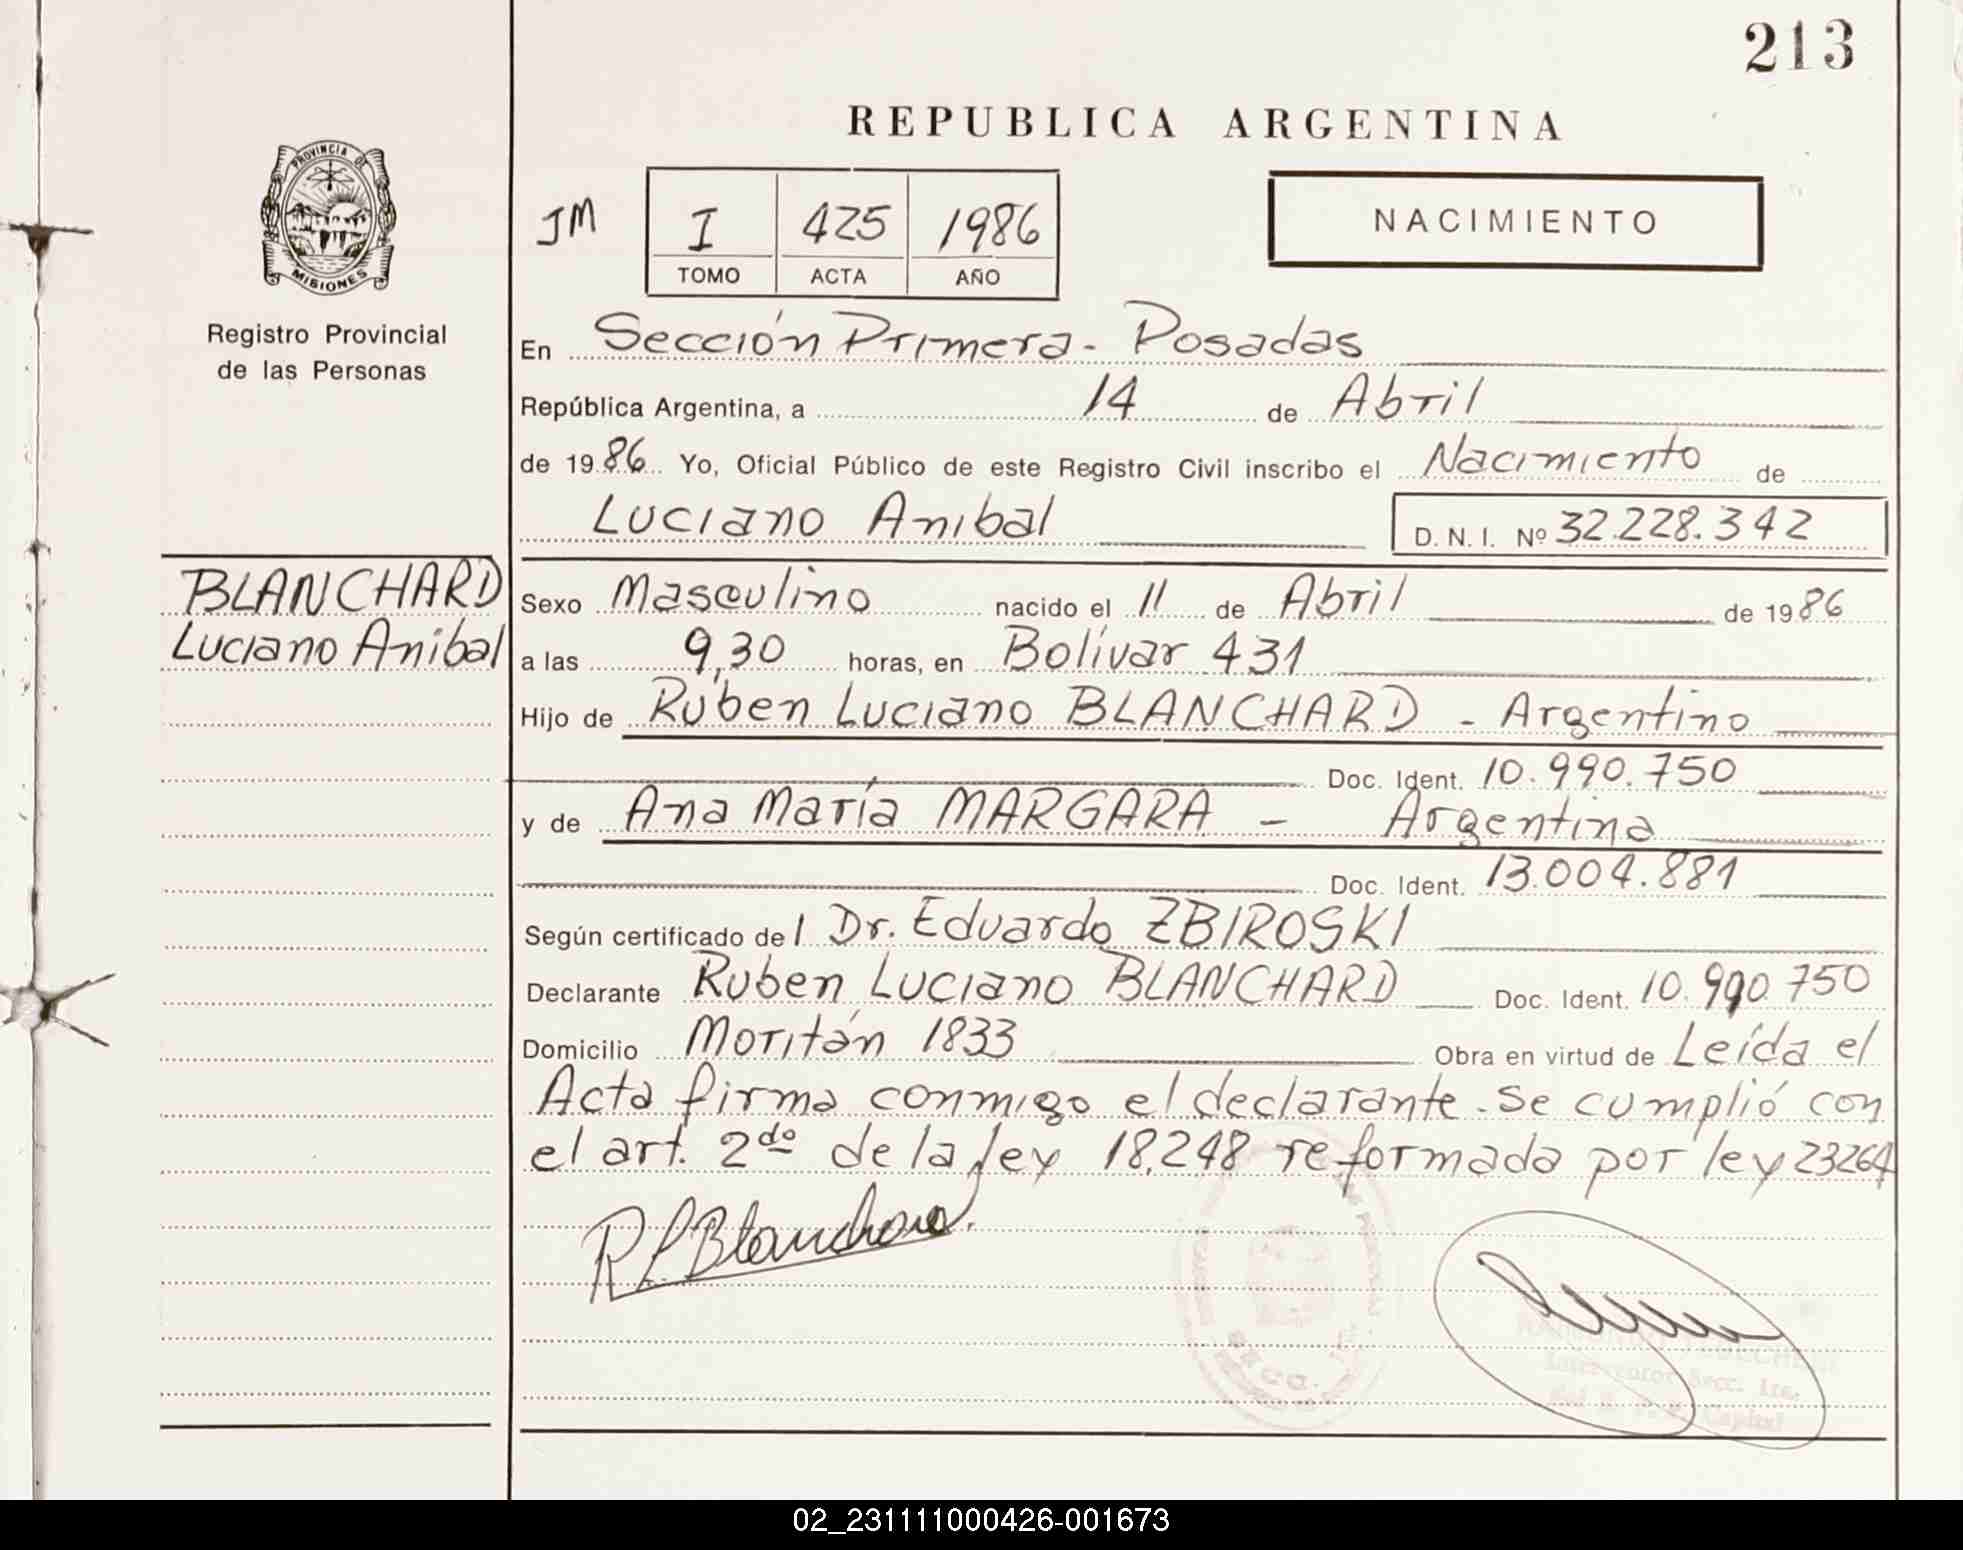 213
REPUBLICA ARGENTINA
PROVINCIA DE
MISIONES
Registro Provincial
de las Personas
JM
I 425 1986
TOMO ACTA AÑO
NACIMIENTO
En Sección Primera - Posadas
República Argentina, a 14 de Abril
de 1986 Yo, Oficial Público de este Registro Civil inscribo el Nacimiento de
Luciano Anibal D. N. I. Nº 32.228.342
BLANCHARD
Luciano Anibal
Sexo Masculino nacido el 11 de Abril de 1986
a las 9,30 horas, en Bolívar 431
Hijo de Rúben Luciano BLANCHARD - Argentino
Doc. Ident. 10.990.750
y de Ana María MARGARA - Argentina
Doc. Ident. 13.004.881
Según certificado del Dr. Eduardo ZBIROSKI
Declarante Ruben Luciano BLANCHARD Doc. Ident. 10.990.750
Domicilio Moritán 1833 Obra en virtud de Leída el
Acta firma conmigo el declarante. Se cumplió con
el art. 2do de la ley 18.248 reformada por ley 23264
R L Blanchard
Secc. 1ra.
Capital
02_231111000426-001673